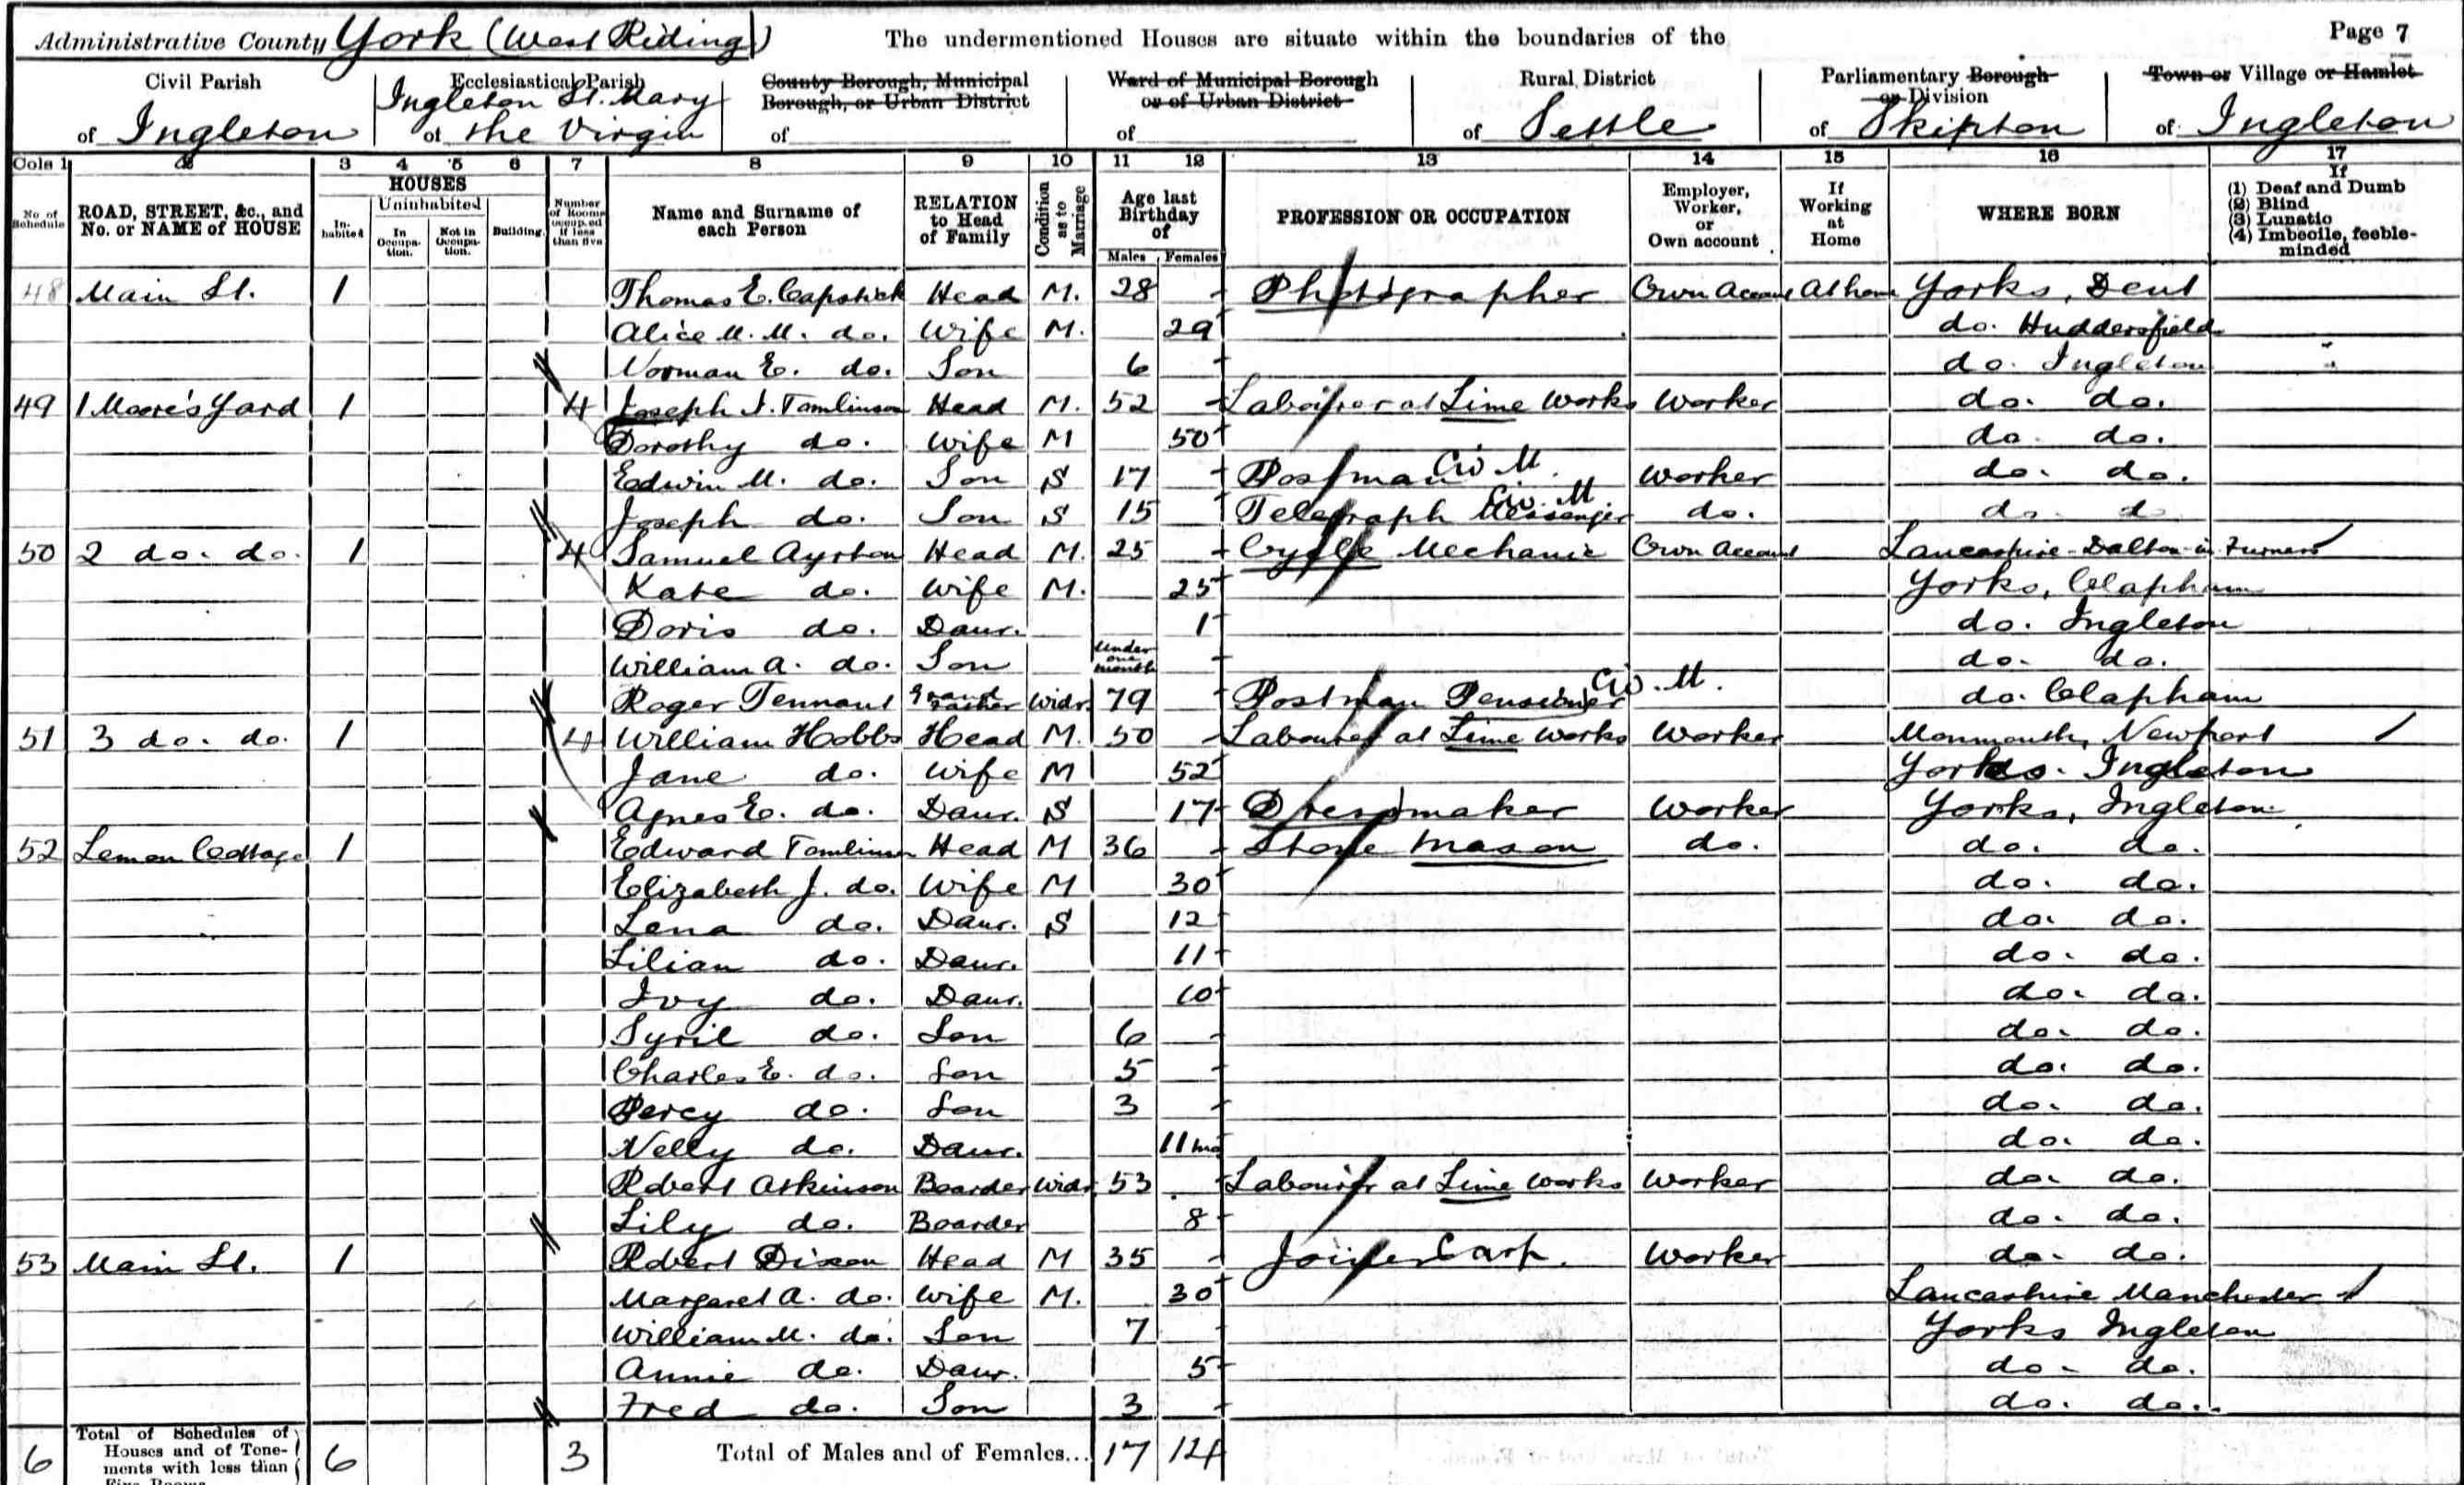 Administrative County York (West Riding) The undermentioned Houses are situate within the boundaries of the Page 7
Civil Parish Ecclesiastical Parish County Borough, Municipal Borough, or Urban District Ward of Municipal Borough or of Urban District Rural District Parliamentary Borough or Division Town or Village or Hamlet
of Ingleton of Ingleton St. Mary the Virgin of of of Settle of Skipton of Ingleton
Cols 1 2 3 4 5 6 7 8 9 10 11 12 13 14 15 16 17
No of Schedule ROAD, STREET, &c., and No. or NAME of HOUSE HOUSES Inhabited Uninhabited In Occupation. Not in Occupation. Building. Number of Rooms occupied if less than five Name and Surname of each Person RELATION to Head of Family Condition as to Marriage Age last Birthday of Males Females PROFESSION OR OCCUPATION Employer, Worker, or Own account If Working at Home WHERE BORN If (1) Deaf and Dumb (2) Blind (3) Lunatic (4) Imbecile, feeble-minded
48 Main St. 1 Thomas E. Capstick Head M. 28 Photographer Own Account At home Yorks, Dent
Alice M. M. do. Wife M. 29 do. Huddersfield
Norman E. do. Son 6 do. Ingleton
49 1 Moore's Yard 1 4 Joseph J. Tomlinson Head M. 52 Labourer at Lime Works Worker do. do.
Dorothy do. Wife M 50 do. do.
Edwin M. do. Son S 17 Postman Civ. M. Worker do. do.
Joseph do. Son S 15 Telegraph Messenger Civ. M. do. do. do
50 2 do. do. 1 4 Samuel Ayrton Head M. 25 Cycle Mechanic Own Account Lancashire - Dalton in Furness
Kate do. Wife M. 25 Yorks, Clapham
Doris do. Daur. 1 do. Ingleton
William A. do. Son under one month do. do.
Roger Tennant Grand father Widr. 79 Postman Pensioner Civ. M. do. Clapham
51 3 do. do. 1 4 William Hobbs Head M. 50 Labourer at Lime Works Worker Monmouth, Newport
Jane do. Wife M 52 Yorks. Ingleton
Agnes E. do. Daur. S 17 Dressmaker Worker Yorks, Ingleton
52 Lemon Cottage 1 Edward Tomlinson Head M 36 Stone Mason do. do. do.
Elizabeth J. do. Wife M 30 do. do.
Lena do. Daur. S 12 do. do.
Lilian do. Daur. 11 do. do.
Ivy do. Daur. 10 do. do.
Syril do. Son 6 do. do.
Charles E. do. Son 5 do. do.
Percy do. Son 3 do. do.
Nelly do. Daur. 11 mo do. do.
Robert Atkinson Boarder Widr 53 Labourer at Lime Works Worker do. do.
Lily do. Boarder 8 do. do.
53 Main St. 1 Robert Dixon Head M 35 Joiner Carp. Worker do. do.
Margaret A. do. Wife M. 30 Lancashire Manchester
William M. do. Son 7 Yorks Ingleton
Annie do. Daur. 5 do. do.
Fred do. Son 3 do. do.
6 Total of Schedules of Houses and of Tenements with less than 6 3 Total of Males and of Females... 17 14